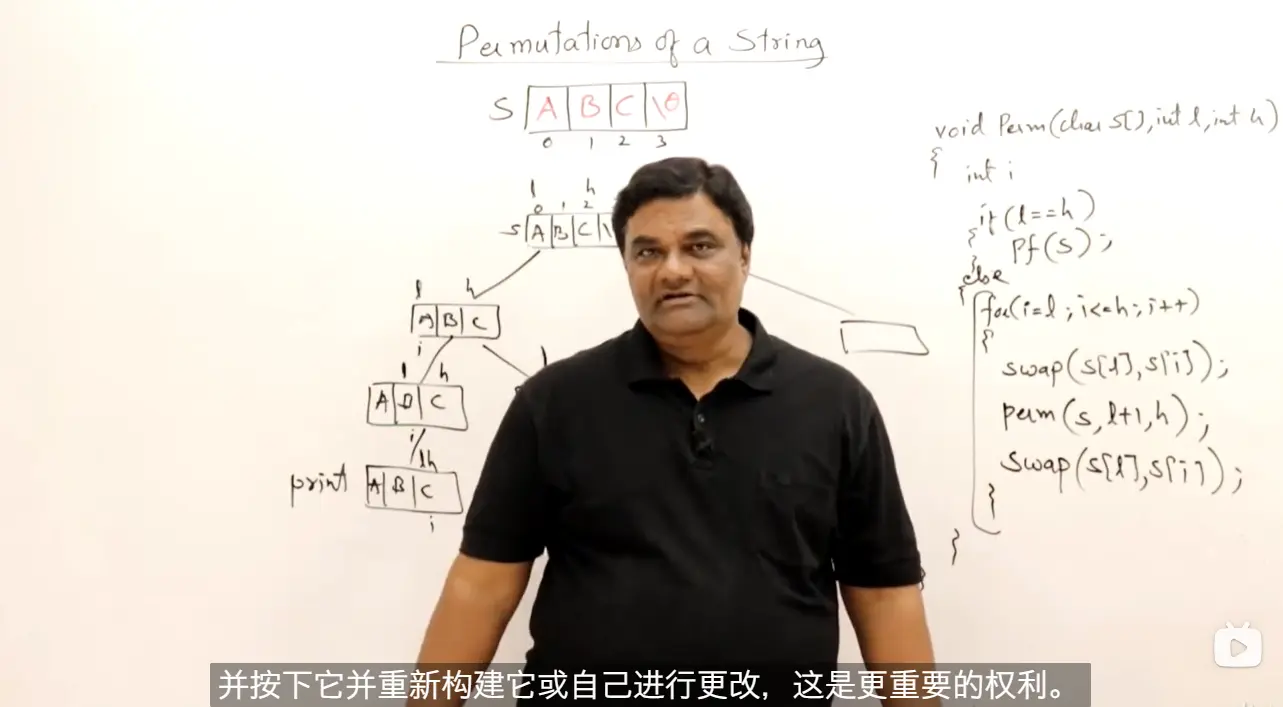 Permutations of a String
S A B C \0
0 1 2 3
l h
0 1 2
S A B C \
l h
A B C
i
l h
A B C
i
l h
print A B C
i
l
void Perm(char s[], int l, int h)
{
int i
if (l==h)
{
Pf(s);
}
else
{
for(i=l ; i<=h ; i++)
{
swap(s[l], s[i]);
perm(s, l+1, h);
swap(s[l], s[i]);
}
}
并按下它并重新构建它或自己进行更改，这是更重要的权利。